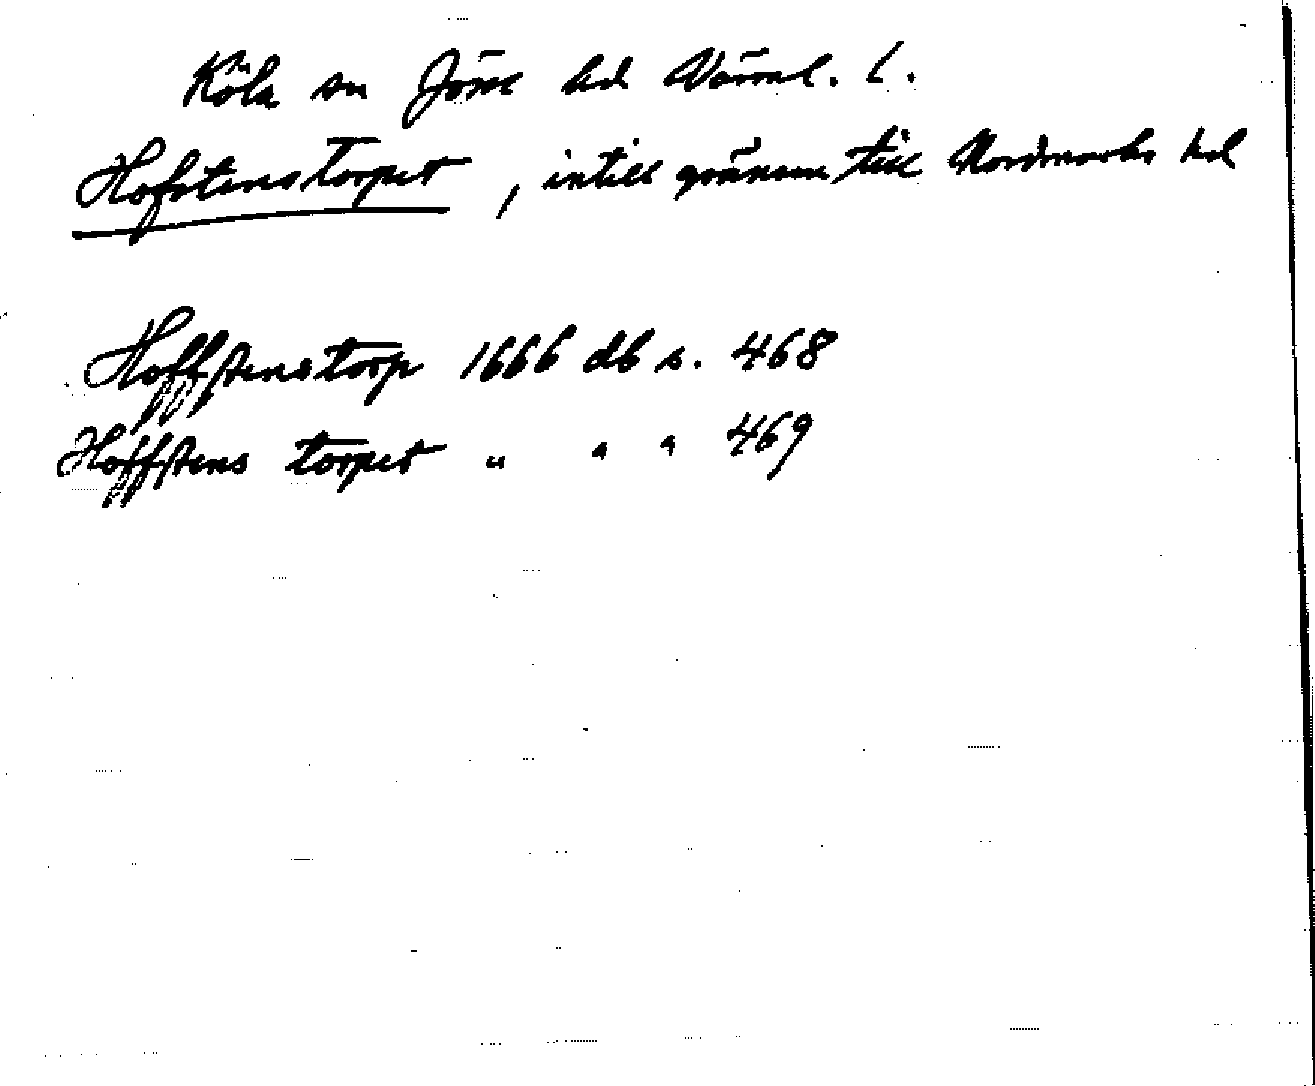 Köla sn Jösse hd Värml. l.
Hofstenstorpet, intill gränsen till Nordmarks hd
Hoffstenstorp 1666 db s. 468
Hoffstens torpet " " " 469